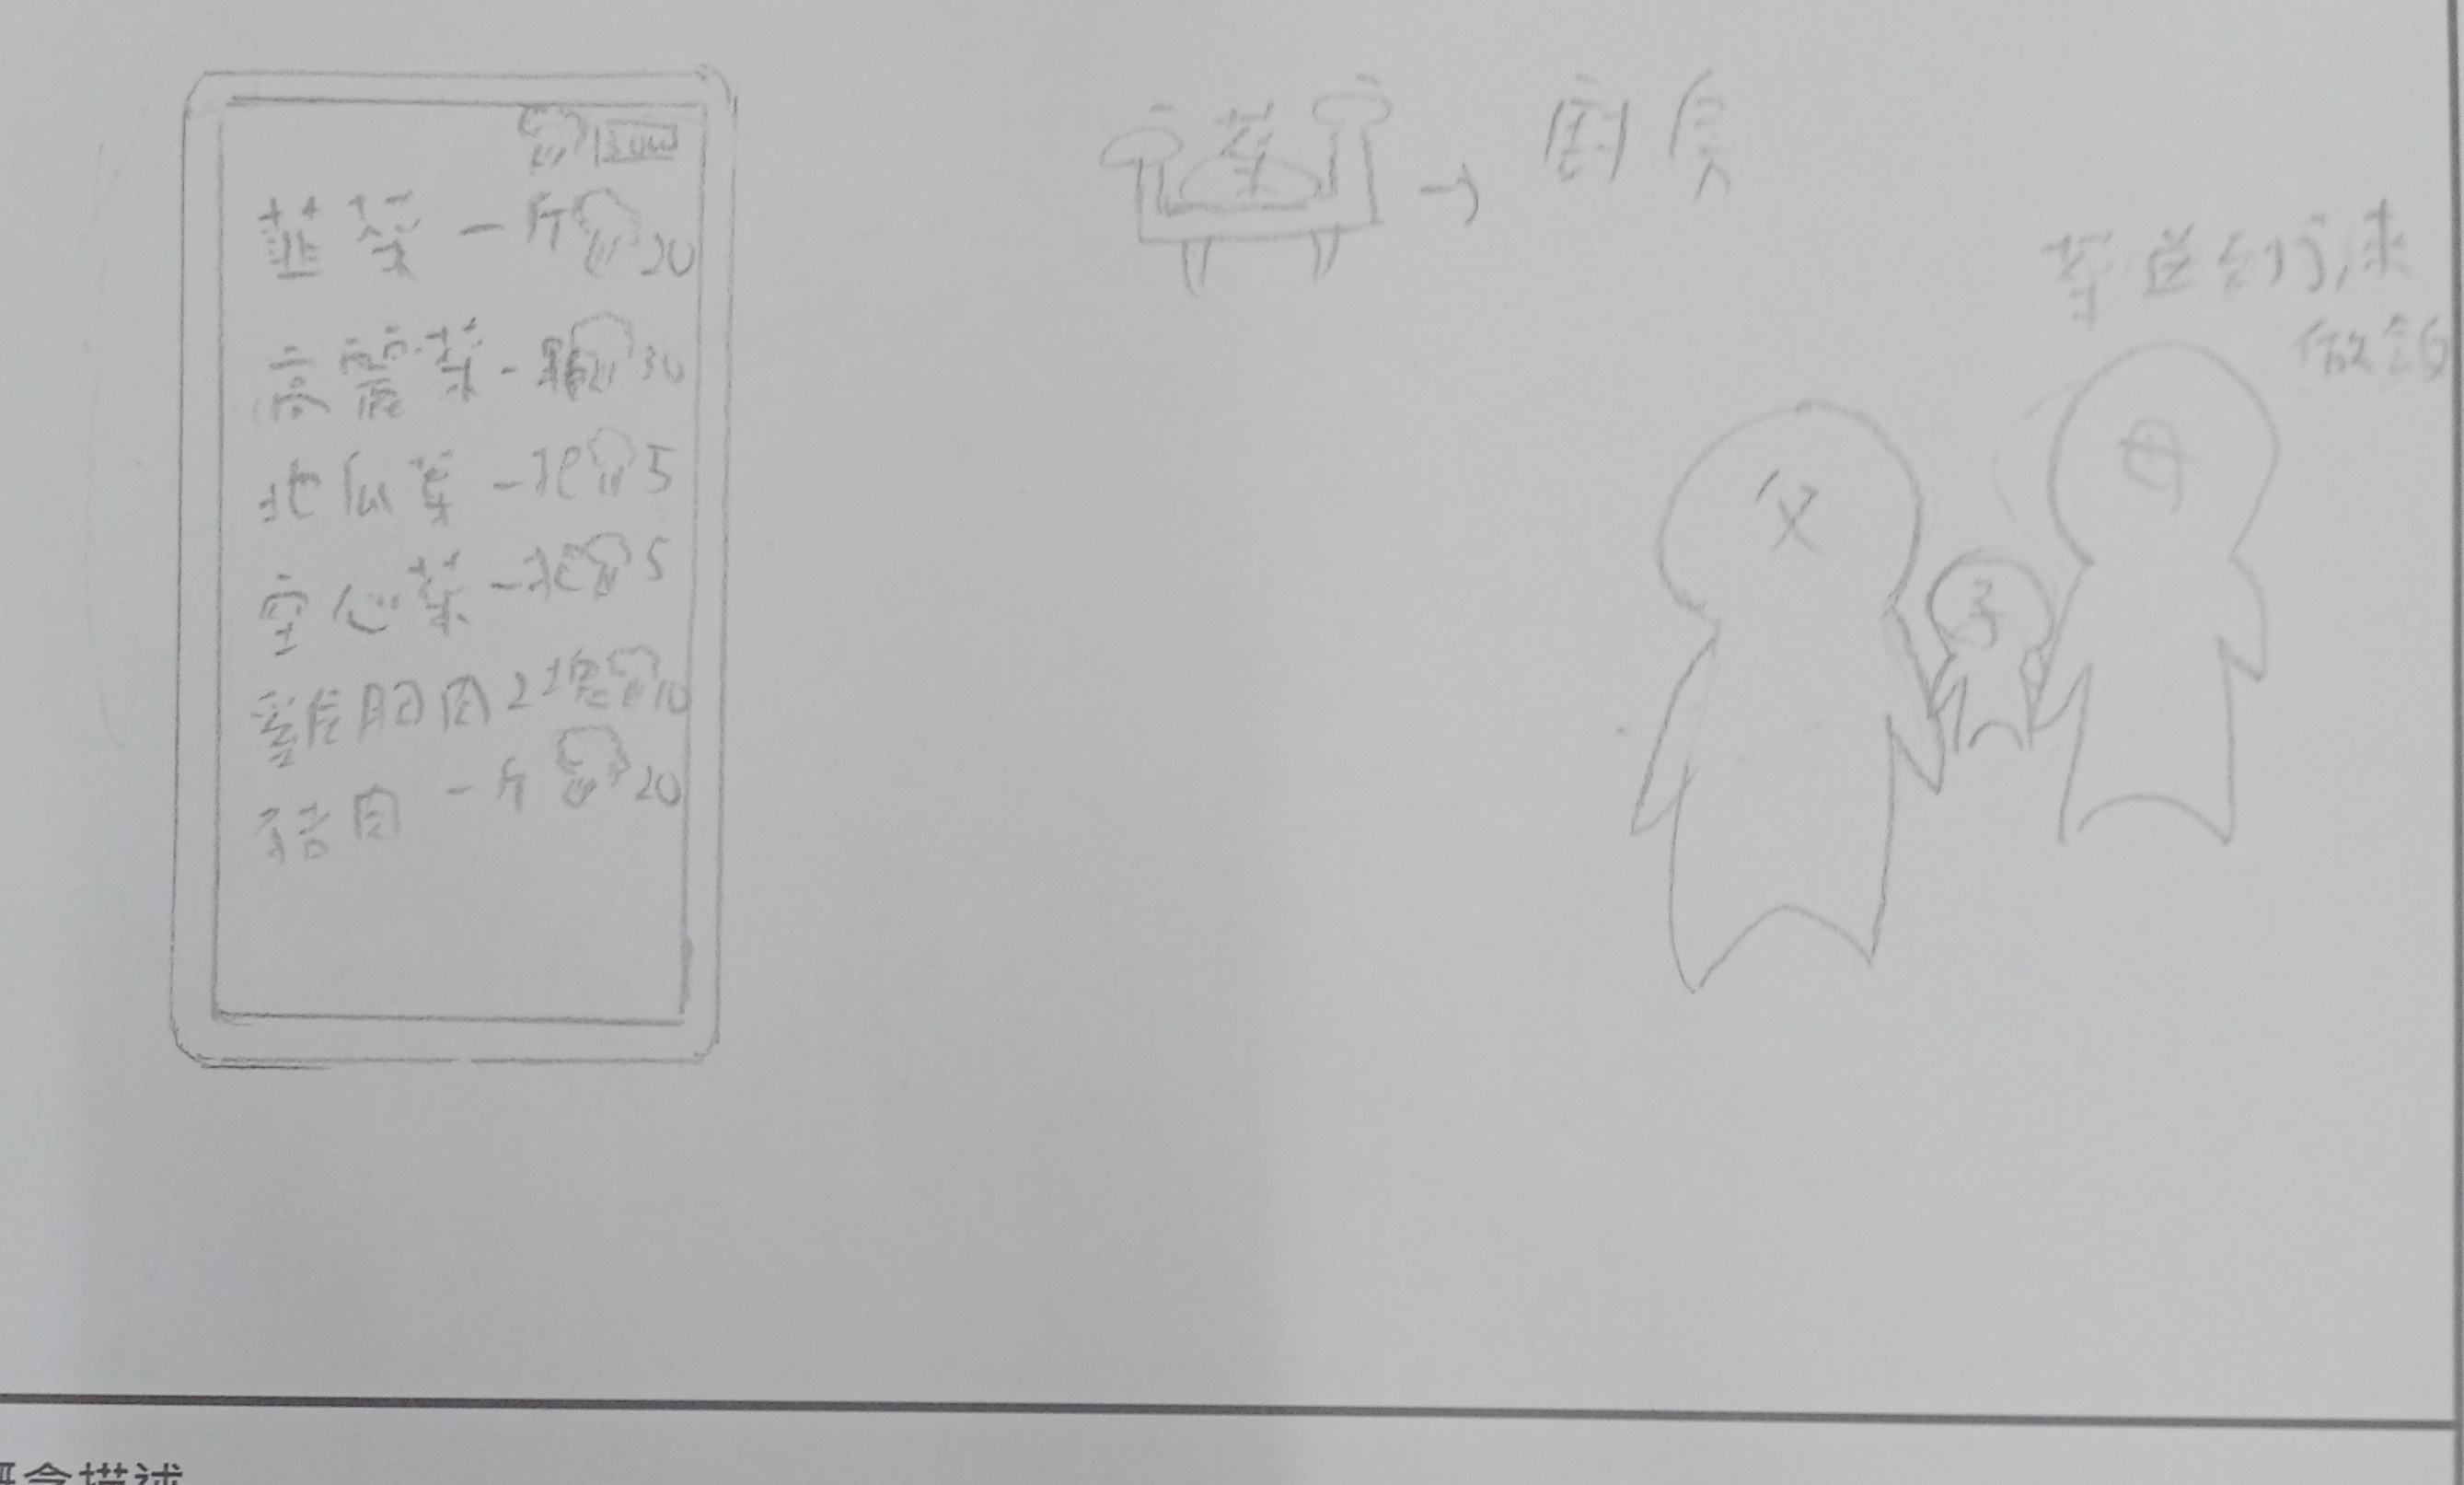 300
韮菜一斤20
高麗菜一顆30
地瓜葉一把5
空心菜一把5
雞胸肉2塊10
豬肉一斤20
菜
→
廚房
等送到再來
做飯
父
子
母
概念描述